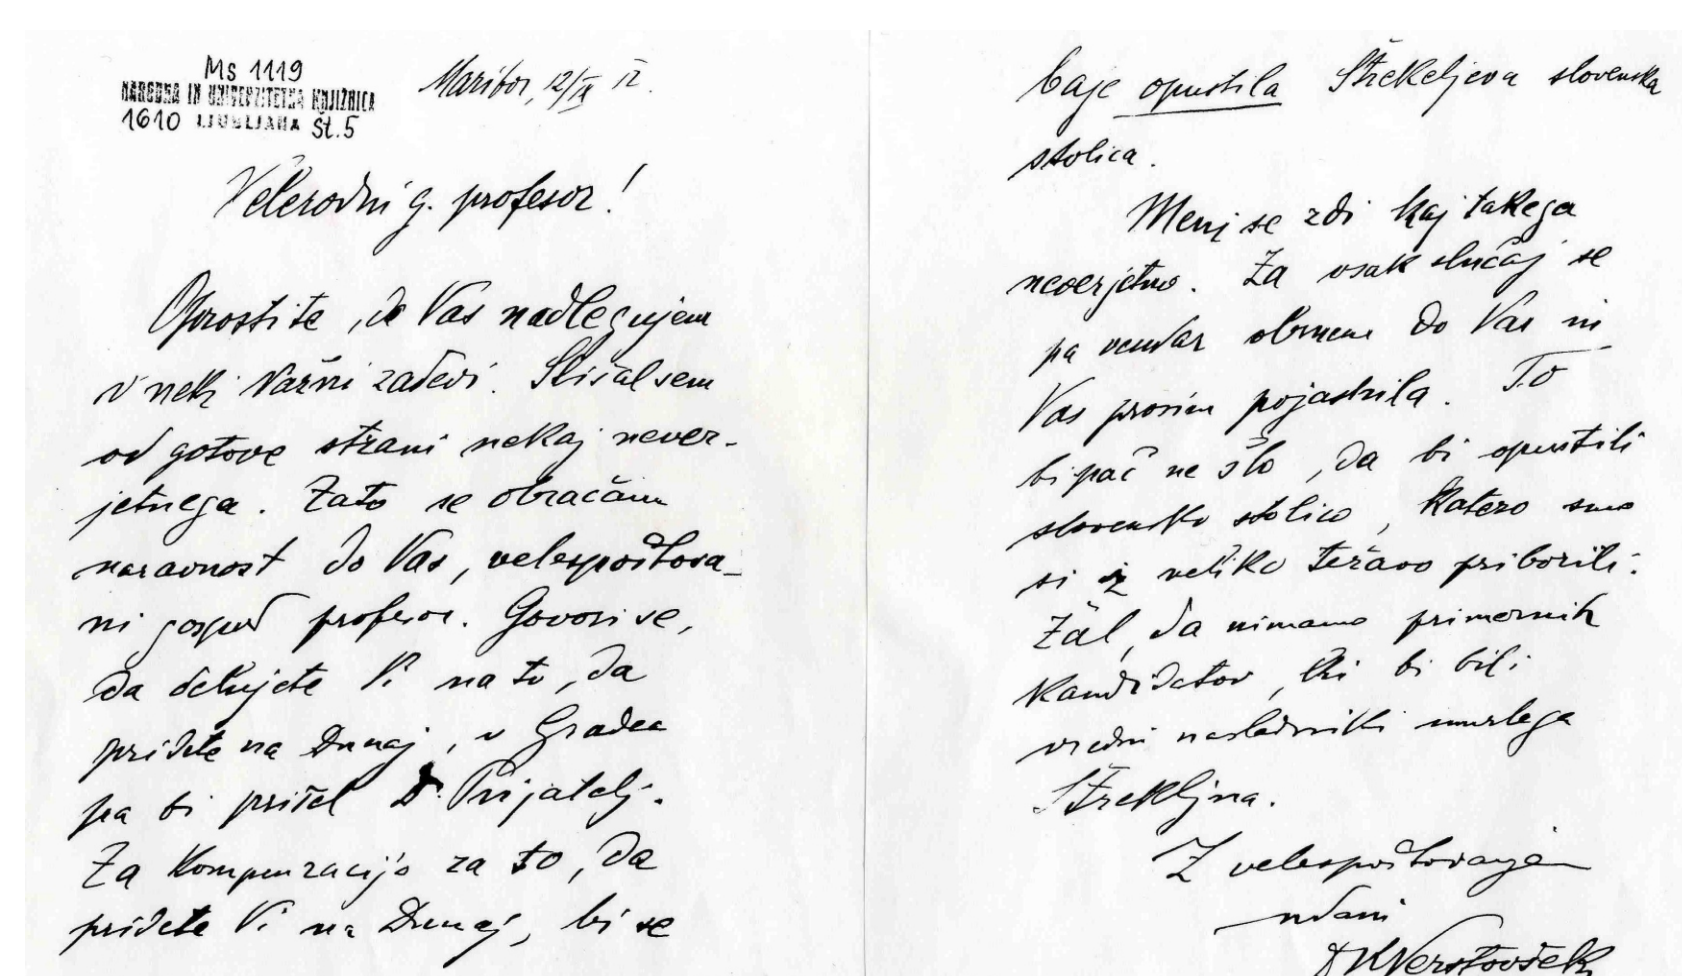 Ms 1119
NARODNA IN UNIVERZITETNA KNJIŽNICA
1610 LJUBLJANA Št. 5
Maribor, 12/IX 12.
Velerodni g. profesor!
Oprostite, da Vas nadlegujem
v neki važni zadevi. Slišal sem
od gotove strani nekaj never-
jetnega. Zato se obračam
naravnost do Vas, velespoštova-
ni gospod profesor. Govori se,
da delujete Vi na to, da
pridete na Dunaj, v Gradec
pa bi prišel Dr. Prijatelj.
Za kompenzacijo za to, da
pridete Vi na Dunaj, bi se
baje opustila Štrekeljeva slovenska
stolica.
Meni se zdi kaj takega
neverjetno. Za vsak slučaj se
pa vendar obrnem do Vas in
Vas prosim pojasnila. To
bi pač ne šlo, da bi opustili
slovensko stolico, katero smo
si z veliko težavo priborili.
Žal, da nimamo primernih
kandidatov, ki bi bili
vredni nasledniki umrlega
Štreklja.
Z velespoštovanjem
udani
Dr K Verstovšek